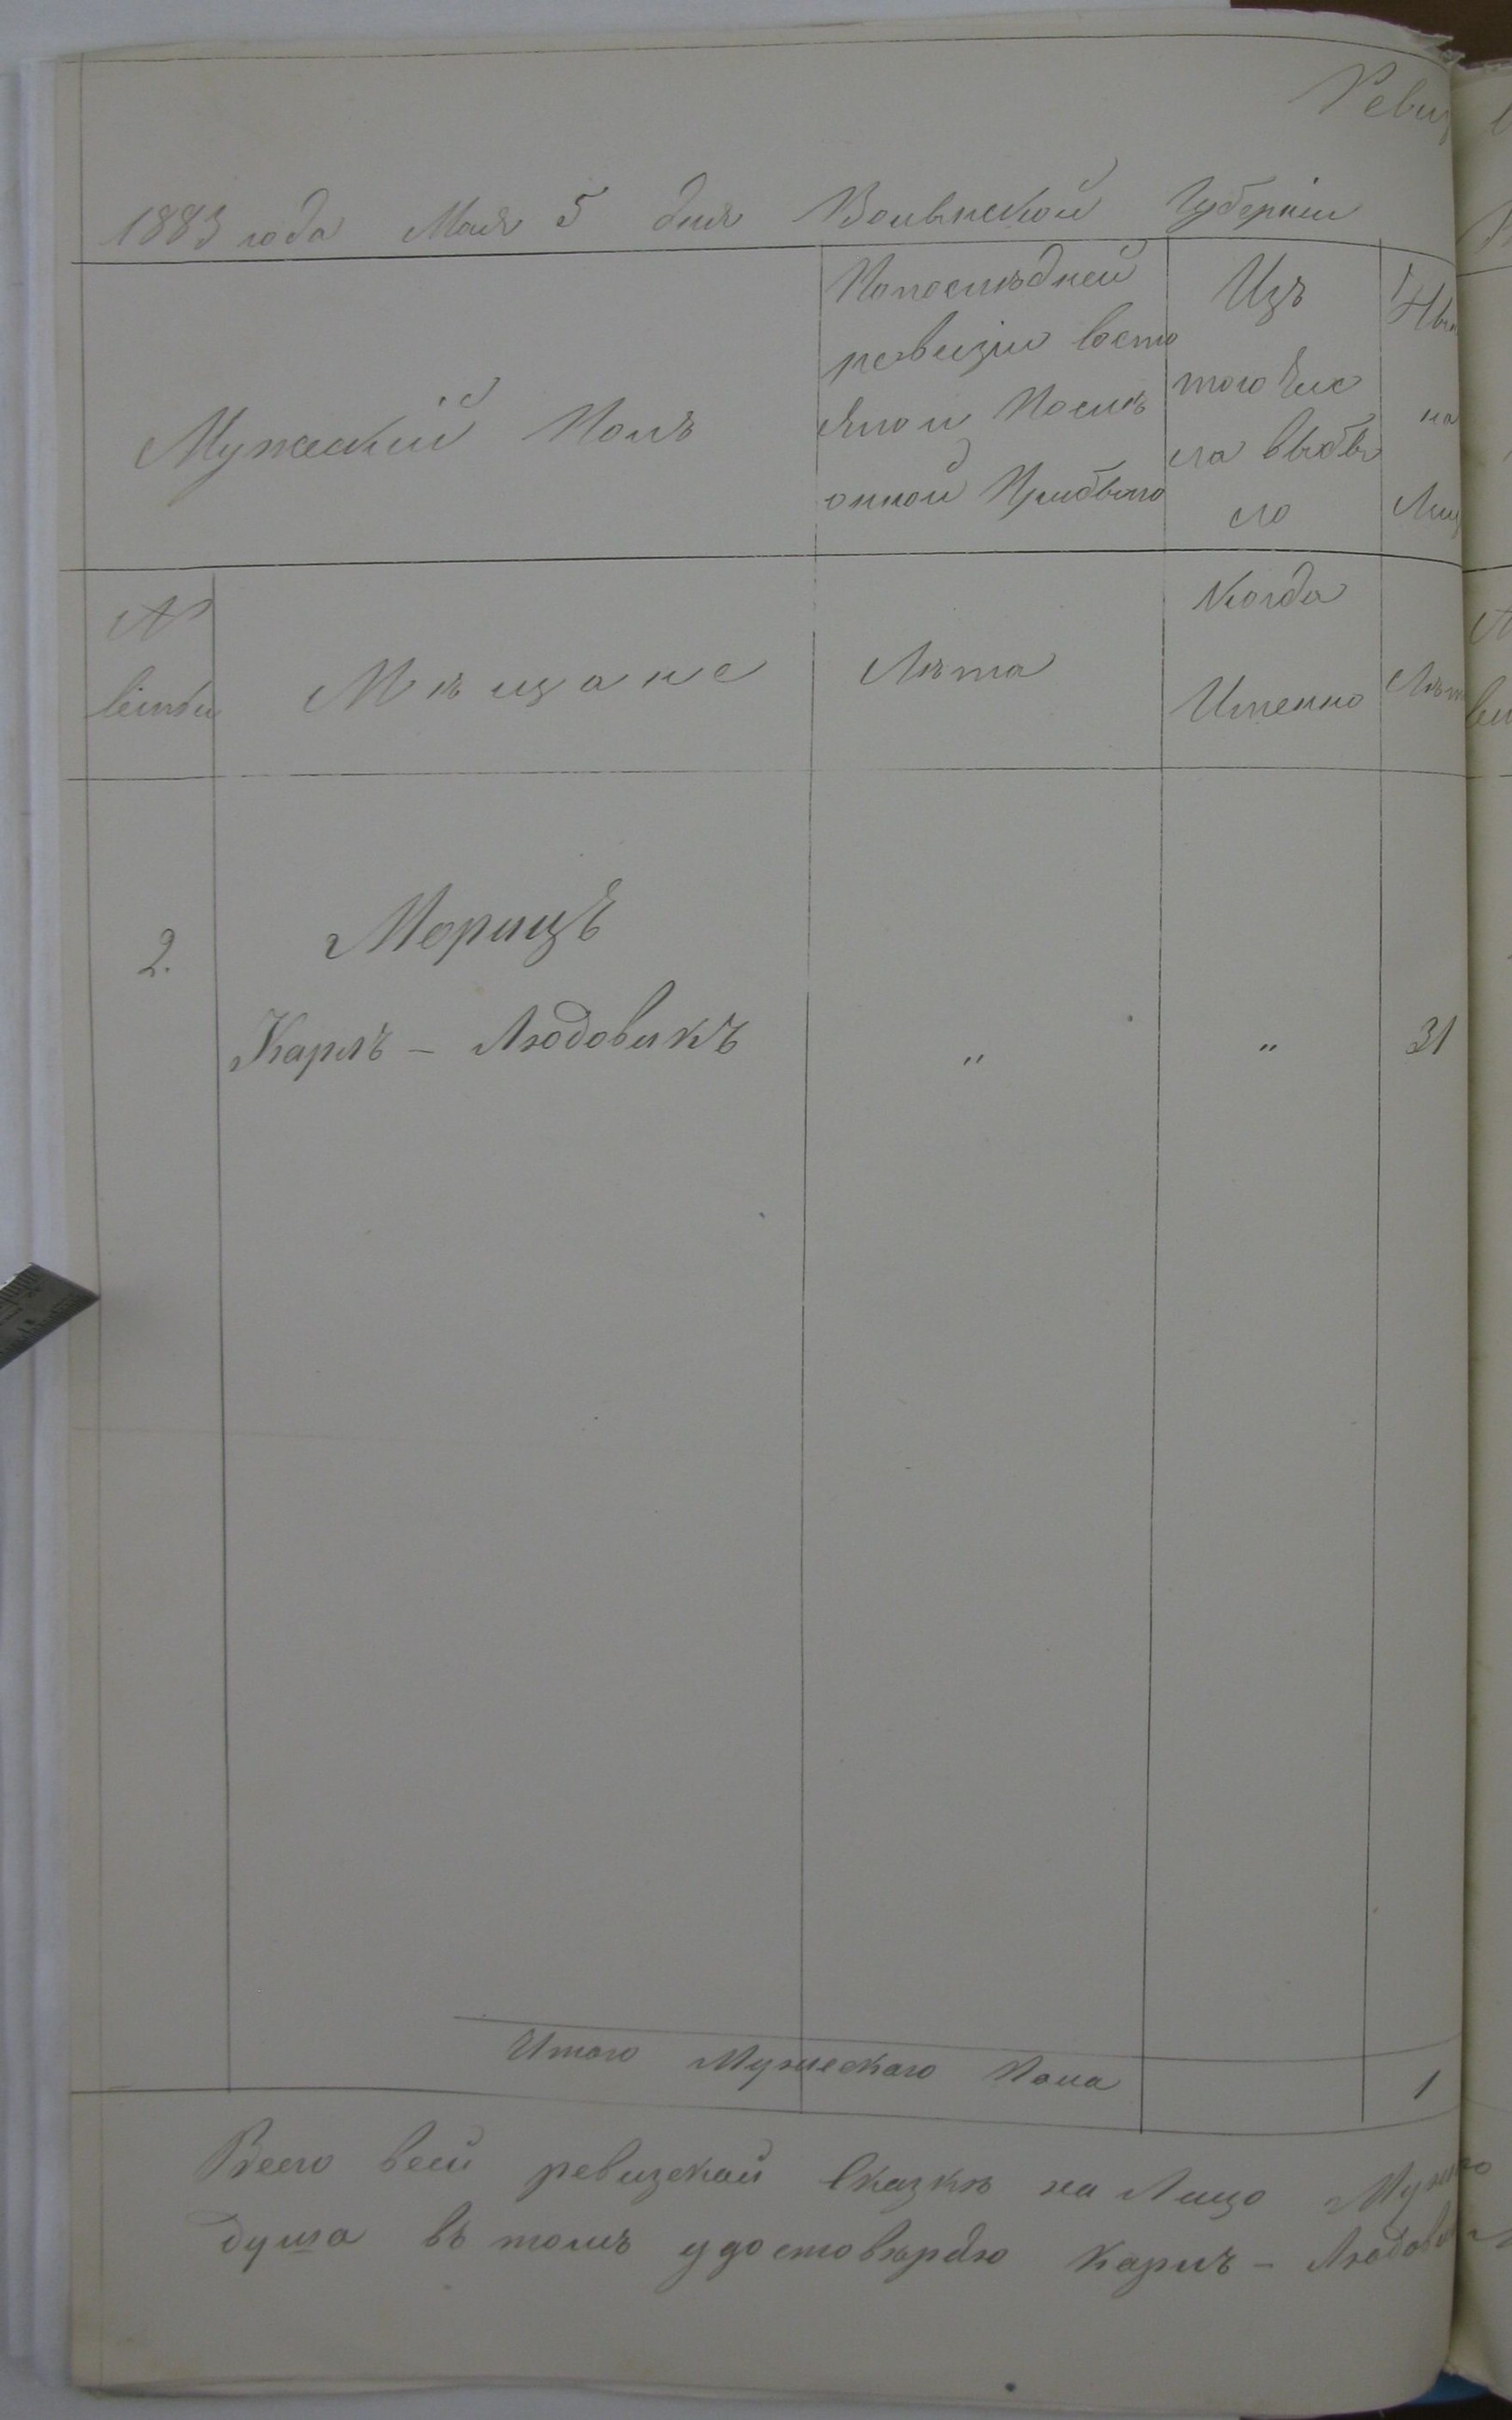 Реви
1883 года Мая 5 дня Волынской Губерніи
Мужескій Полъ
Попослѣдней
ревизіи состо
яло и Послѣ
онной Прибыло
Изъ
того Чис
ла выбы
ло
Нын
на
Лиц
№
Мѣщане
Лѣта
Когда
Именно
Лѣт
2.
Морицъ
Карлъ - Людовикъ
"
"
31
Итого Мужескаго Пола
1
Всего всей ревизской Сказкѣ на Лицо
душа въ томъ удостовѣряю Карлъ - Людови